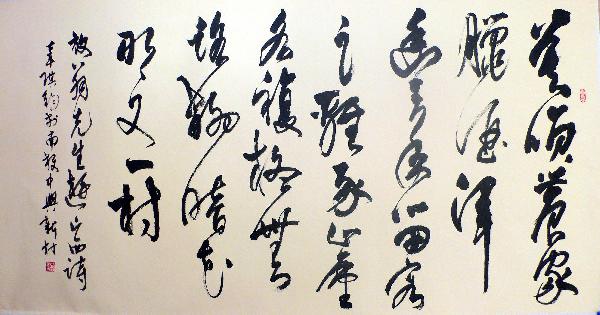 莫笑農家
臘酒渾
豐年留客
足雞豚山重
水複疑無
路柳暗花
明又一村
放翁先生遊山西詩
於南投中興新村